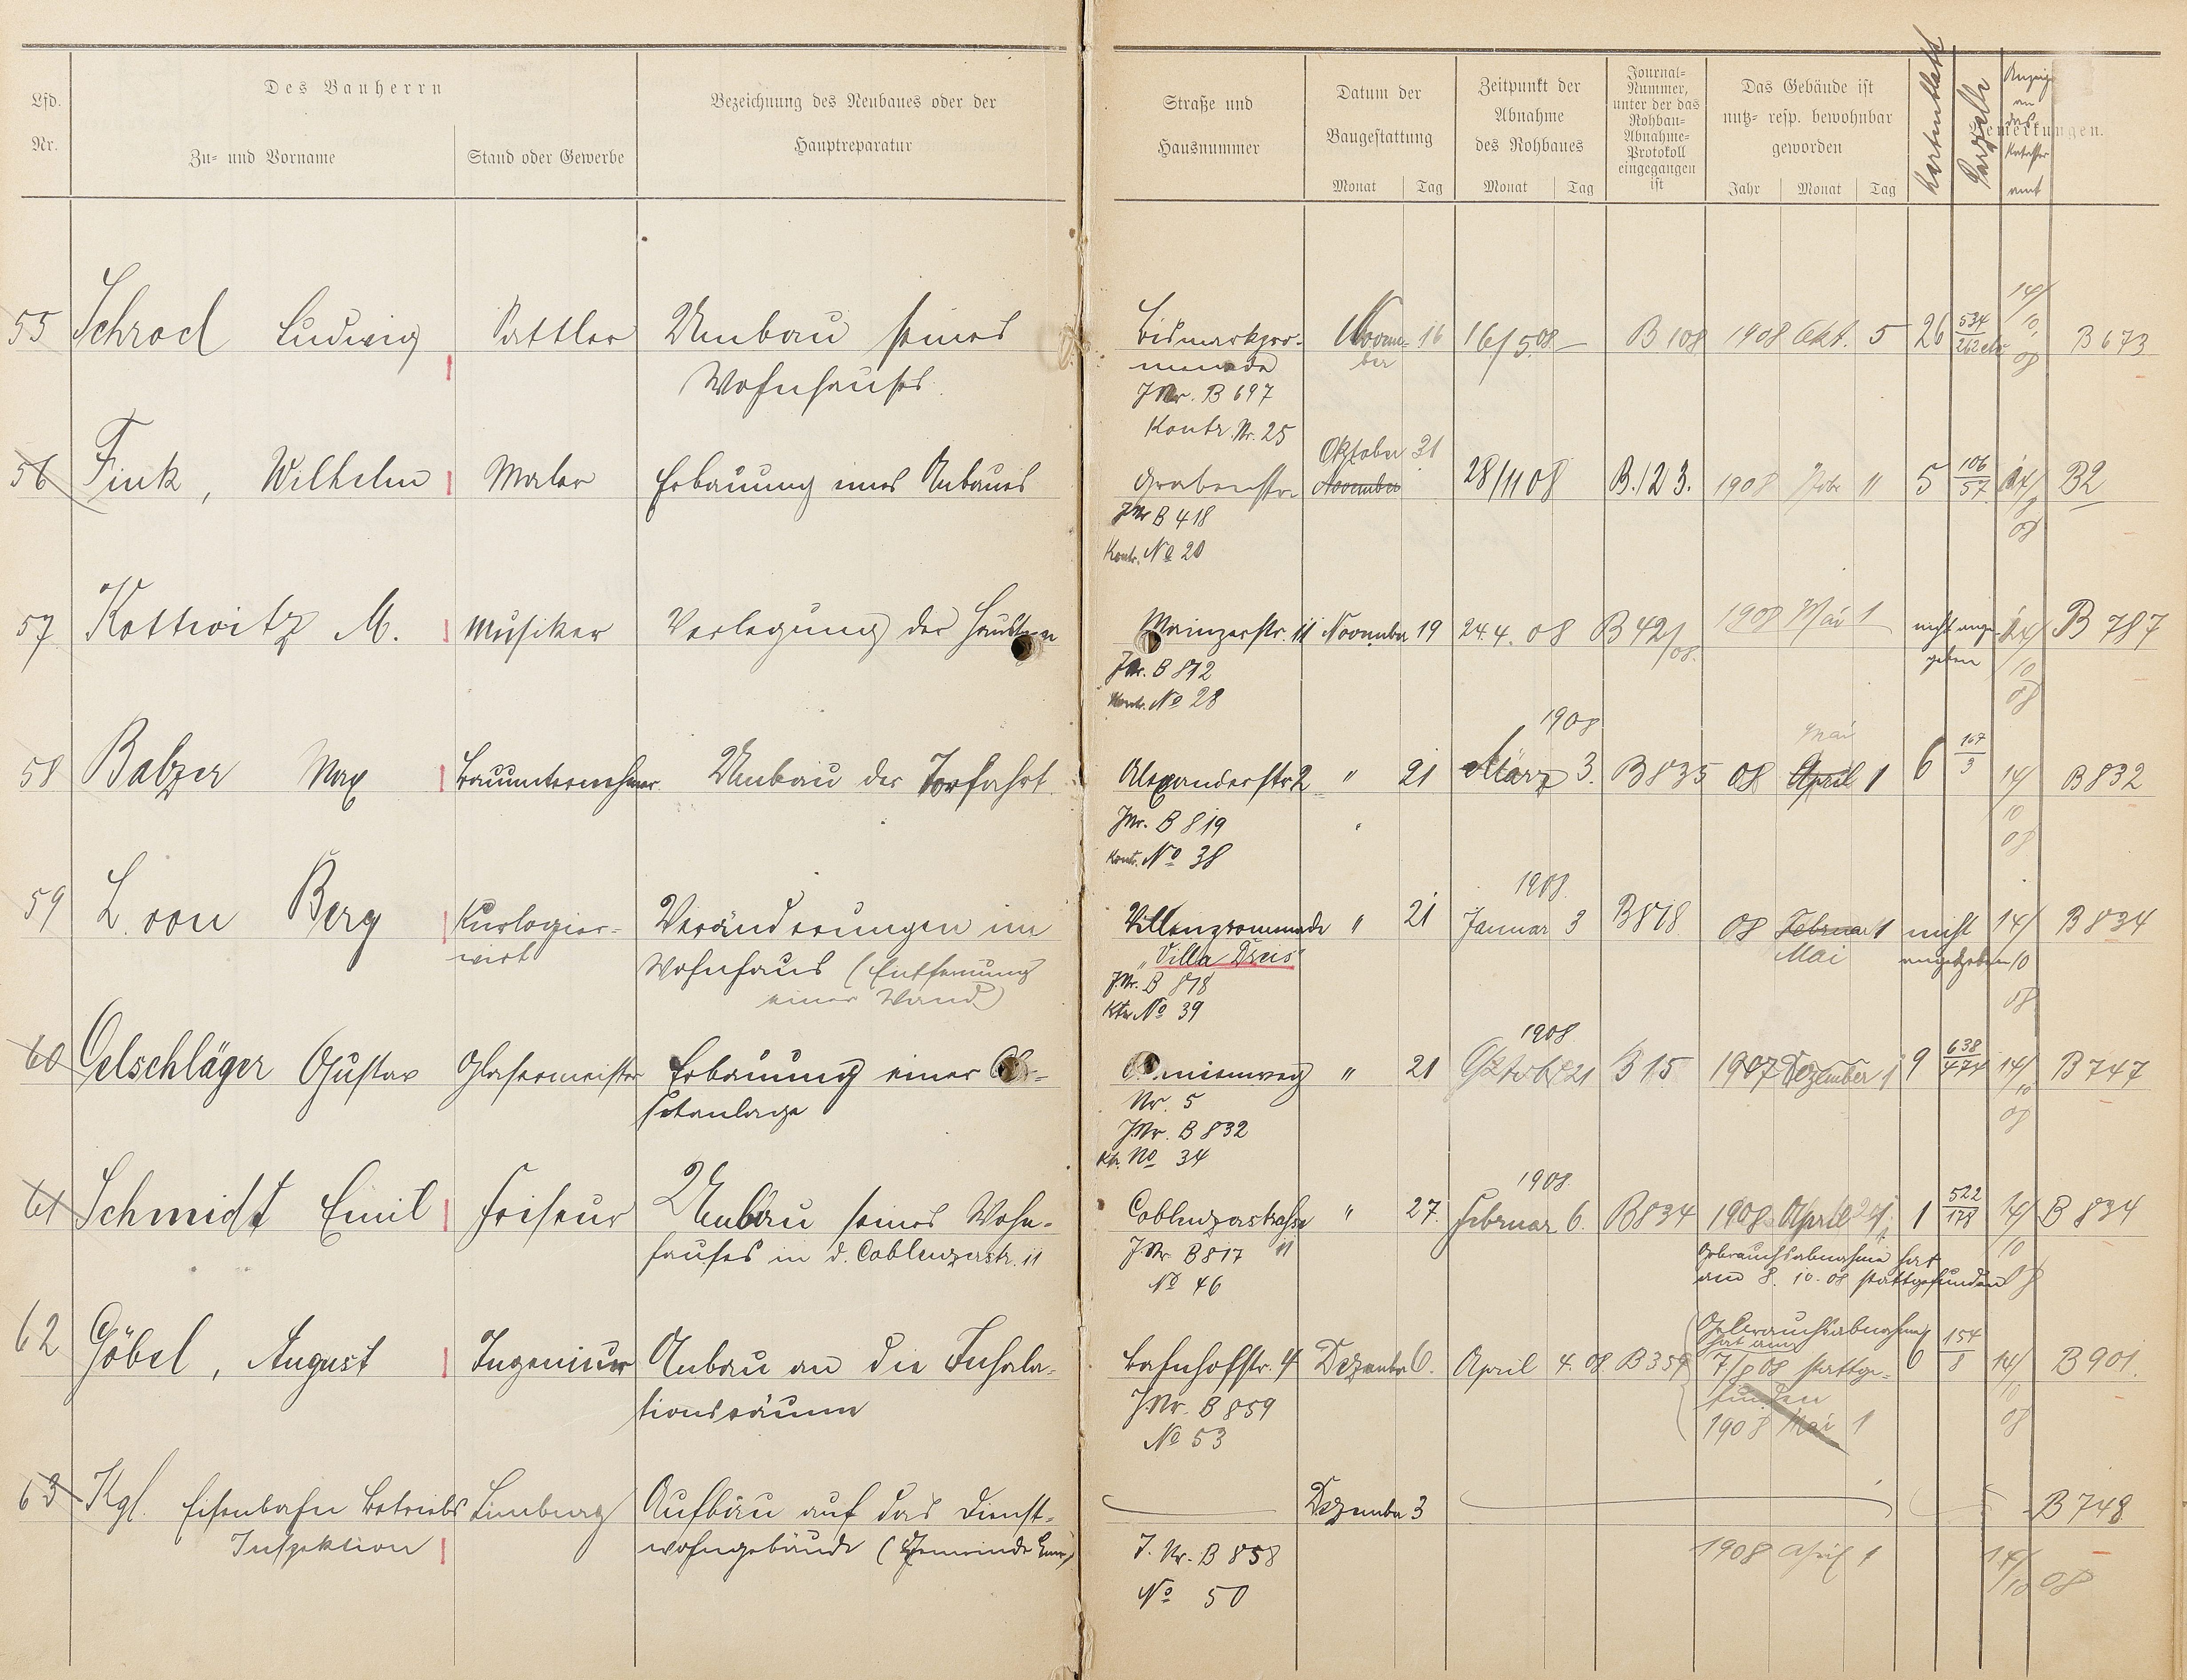 Lfd. Nr.
Des Bauherrn
Zu- und Vorname
Stand oder Gewerbe
Bezeichnung des Neubaues oder der
Hauptreparatur
Straße und
Hausnummer
Datum der
Baugestattung
Monat Tag
Zeitpunkt der
Abnahme
des Rohbaues
Monat Tag
Journal-
Nummer,
unter der das
Rohbau-
Abnahme-
Protokoll
eingegangen
ist
Das Gebäude ist
nutz- resp. bewohnbar
geworden
Jahr Monat Tag
Kartenblatt
Parzelle
Anzeige
an
das
Kataster
amt
Bemerkungen.
55 Schrod Ludwig Sattler Umbau seines
Wohnhauses.
Bismarkpro-
menade
JNr. B 697
Kontr. Nr. 25
Novem-
ber
16 16/5.08 — B 108 1908 Okt. 5 26 534/262 etc 14/10.08 B 673
56 Fink, Wilhelm Maler Erbauung eines Anbaues
Grabenstr.
JNr B 418
Kontr. No 20
Oktober 31
November
28/11 08 B. 123. 1908 11 5 106/57 14/ 08 B2
57 Kottwitz M. Musiker Verlegung der
Mainzerstr. 11 November 19 24.4. 08 B 42/08. 1908 Mai 1 nicht ange-
geben
14/10 08 B 787
JNr. B 872
Kontr. No 28
58 Balzer Max Bauunternehmer Umbau der Torfahrt.
Alexanderstr 2 " 21 1908 März 3. B 835 08 April 1
Mai
6 167/3 14/10 08 B 832
JNr. B 819
Kontr. No 38
59 L. von Berg Kurlogier-
wirt
Veränderungen im
Wohnhaus (Entfernung
einer Wand)
Villenpromenade " 21 1908. Januar 3 B 818 08 Februar 1
Mai
nicht
angegeben
14/10 08 B 834
"Villa Dreis"
JNr. B 818
Ktr. No 39
60 Oelschläger Gustav Glasermeister Erbauung einer
setanlage
Nr. 5
JNr. B 832
Ktr. No 34
" 21 1908. Oktober 21 B 15 1907 Dezember 1 9 638/474 14/10 08 B 747
61 Schmidt Emil Friseur Umbau seines Wohn-
hauses in d. Coblenzerstr. 11
Coblenzerstraße
11
JNr B 817
No 46
" 27. 1908. Februar 6. B 834 1908 April 1 522/178 14/10 08 B 834
Gebrauchsabnahme hat
am 8. 10. 08 stattgefunden
62 Göbel, August Ingenieur Anbau an die Inhala-
tionsräume
Bahnhofstr. 4 Dezember 6. April 4. 08 B 359
JNr. B 859
No 53
Gebrauchsabnahme
hat am
7/8 08 stattge-
funden
1908 Mai 1
6 154/8 14/10 08 B 901.
63 Kgl. Eisenbahn Betriebs
Inspektion
Limburg
Aufbau auf das Dienst-
wohngebäude (Gemeinde Ems)
J. Nr. B 858
No 50
Dezember 3
1908 April 1
14/10 08
B 748